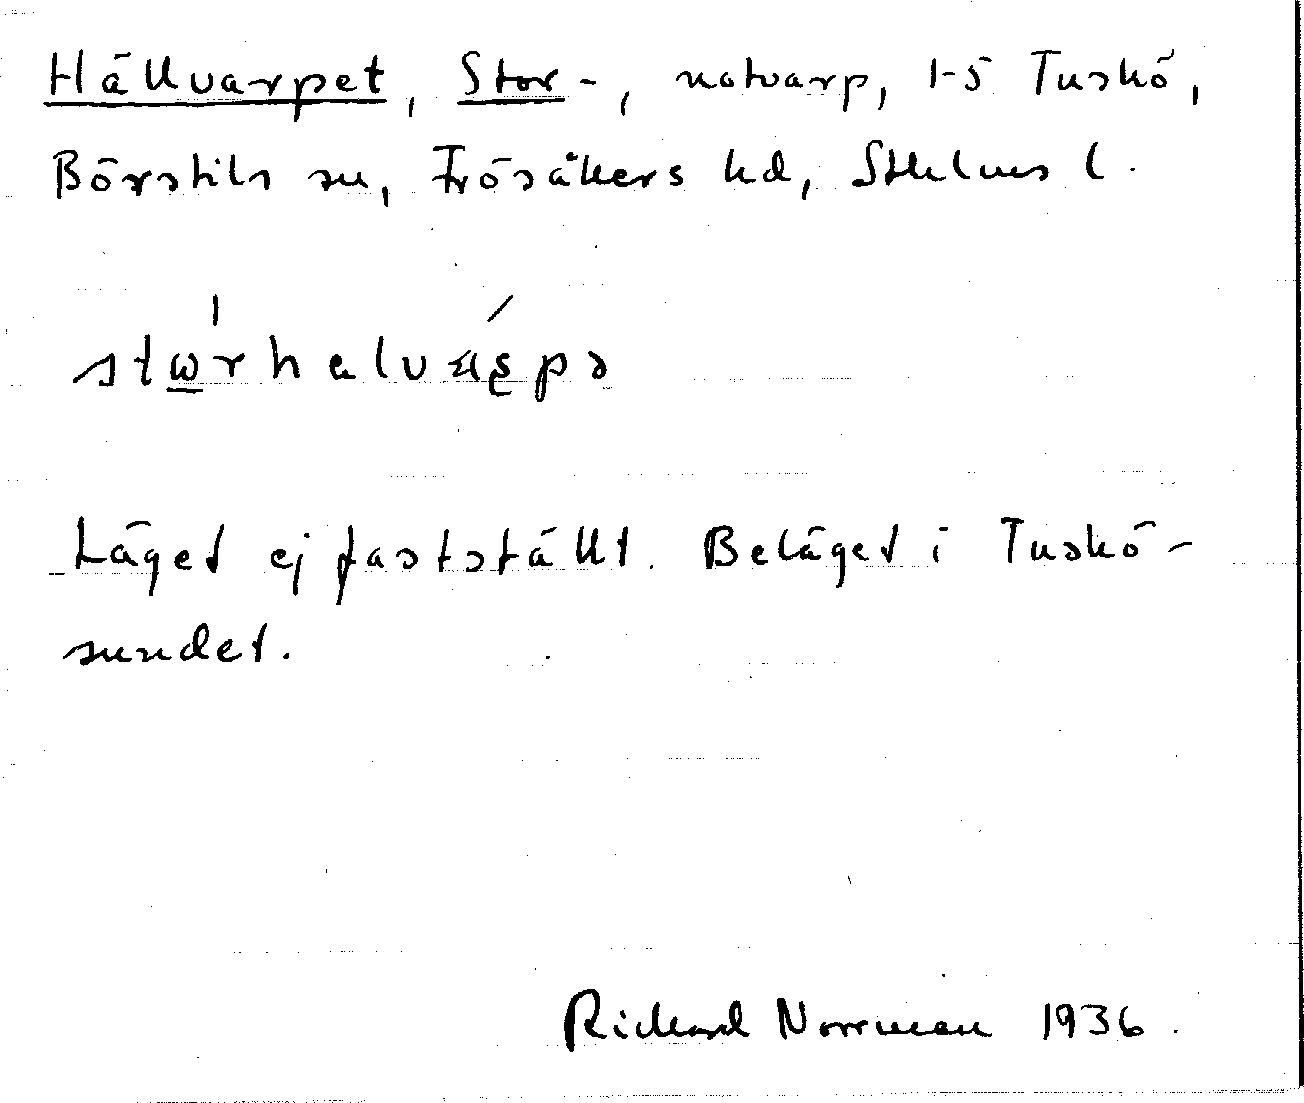 Hällvarpet, Stor-, notvarp, 1-5 Tuskö,
Börstils sn, Frösåkers hd, Sthlms l.
Läget ej fastställt. Beläget i Tuskö-
sundet.
Rickard Norrman 1936.